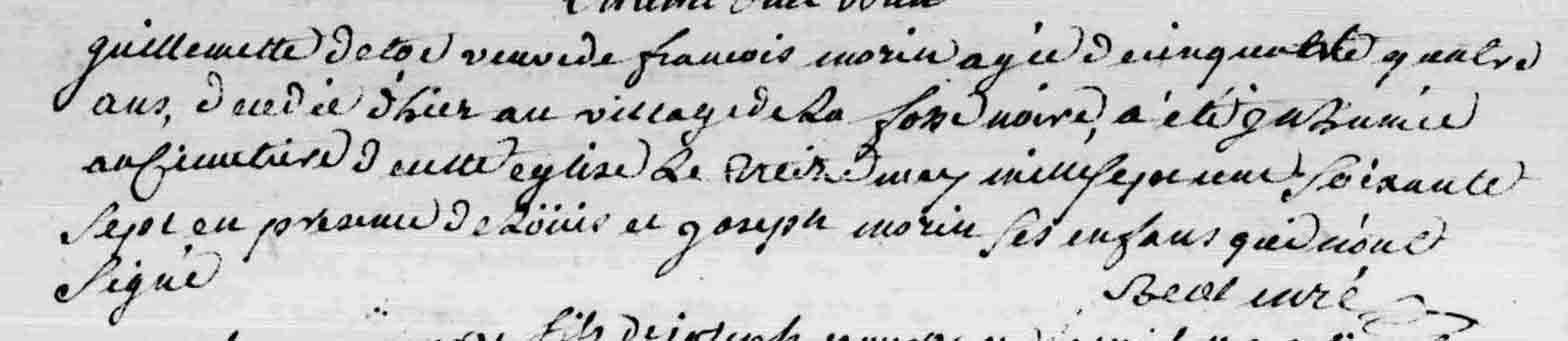 guillemette detoc veuve de francois morin agée de cinquante quatre
ans, decedée d'hier au village de La fosse noire, a été inhumée
au Cimetiere de cette eglise Le treize may mille sept cent soixante
sept en presence de Loüis et joseph morin ses enfans qui n'ont
signé
curé